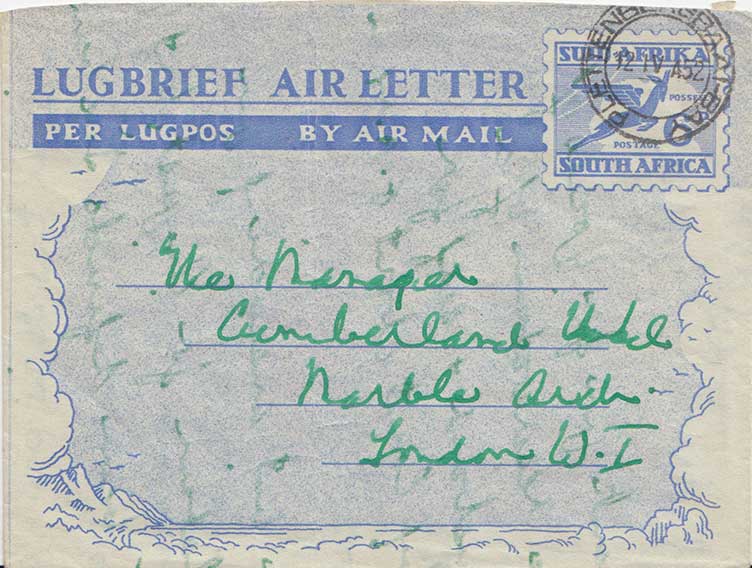 LUGBRIEF AIR LETTER
PER LUGPOS BY AIR MAIL
SUID-AFRIKA
POSSEËL
POSTAGE
6
SOUTH AFRICA
PLETTENBERGSBAAI-BAY
12 IV A52
The Manager
Cumberland Hotel
Marble Arch.
London W.I